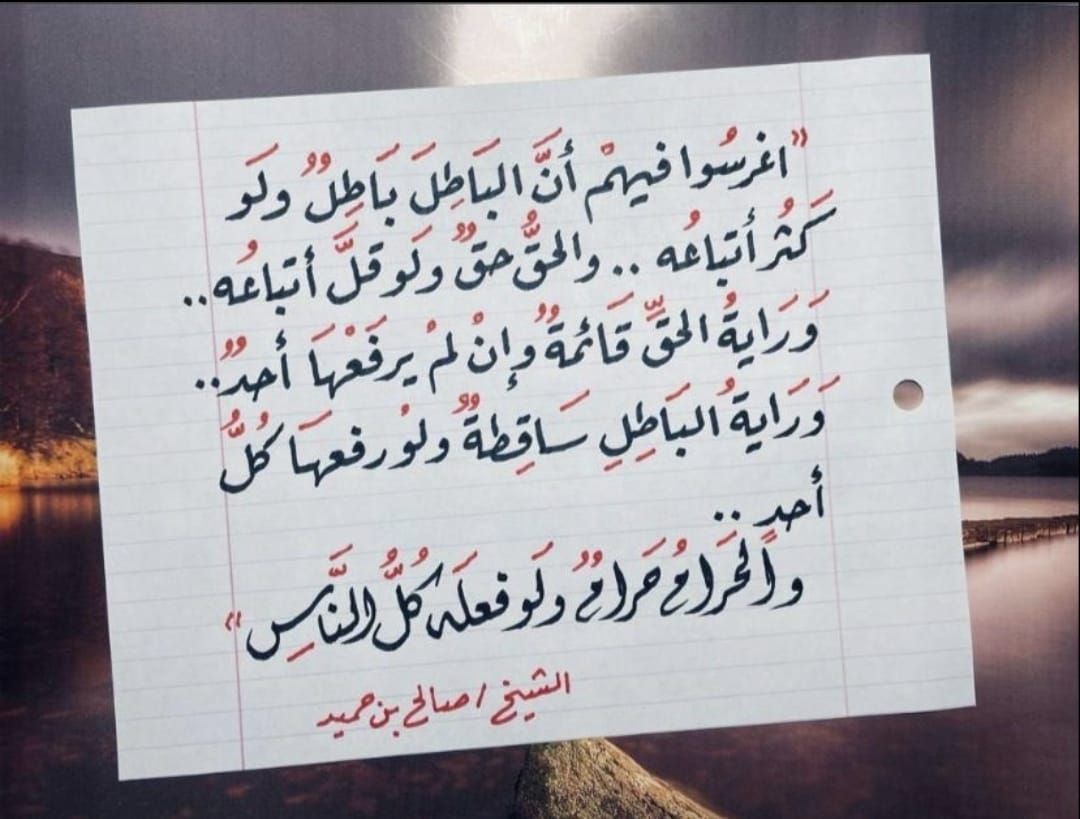 ”اغرسُوا فيهمْ أنَّ البَاطِلَ بَاطِلٌ ولَو
كَثُر أتباعُه .. والحقُّ حقٌ ولَو قلَّ أتباعُه ..
وَرَايةُ الحقِّ قَائمةٌ وإنْ لمْ يرفَعْهَا أحدٌ ..
وَرَايةُ البَاطِلِ سَاقِطةٌ ولوْ رفعهَا كُلُّ
أحدٍ ..
والحَرامُ حَرامٌ ولَو فعلَه كُلُّ النَّاسِ“
الشيخ / صالح بن حميد